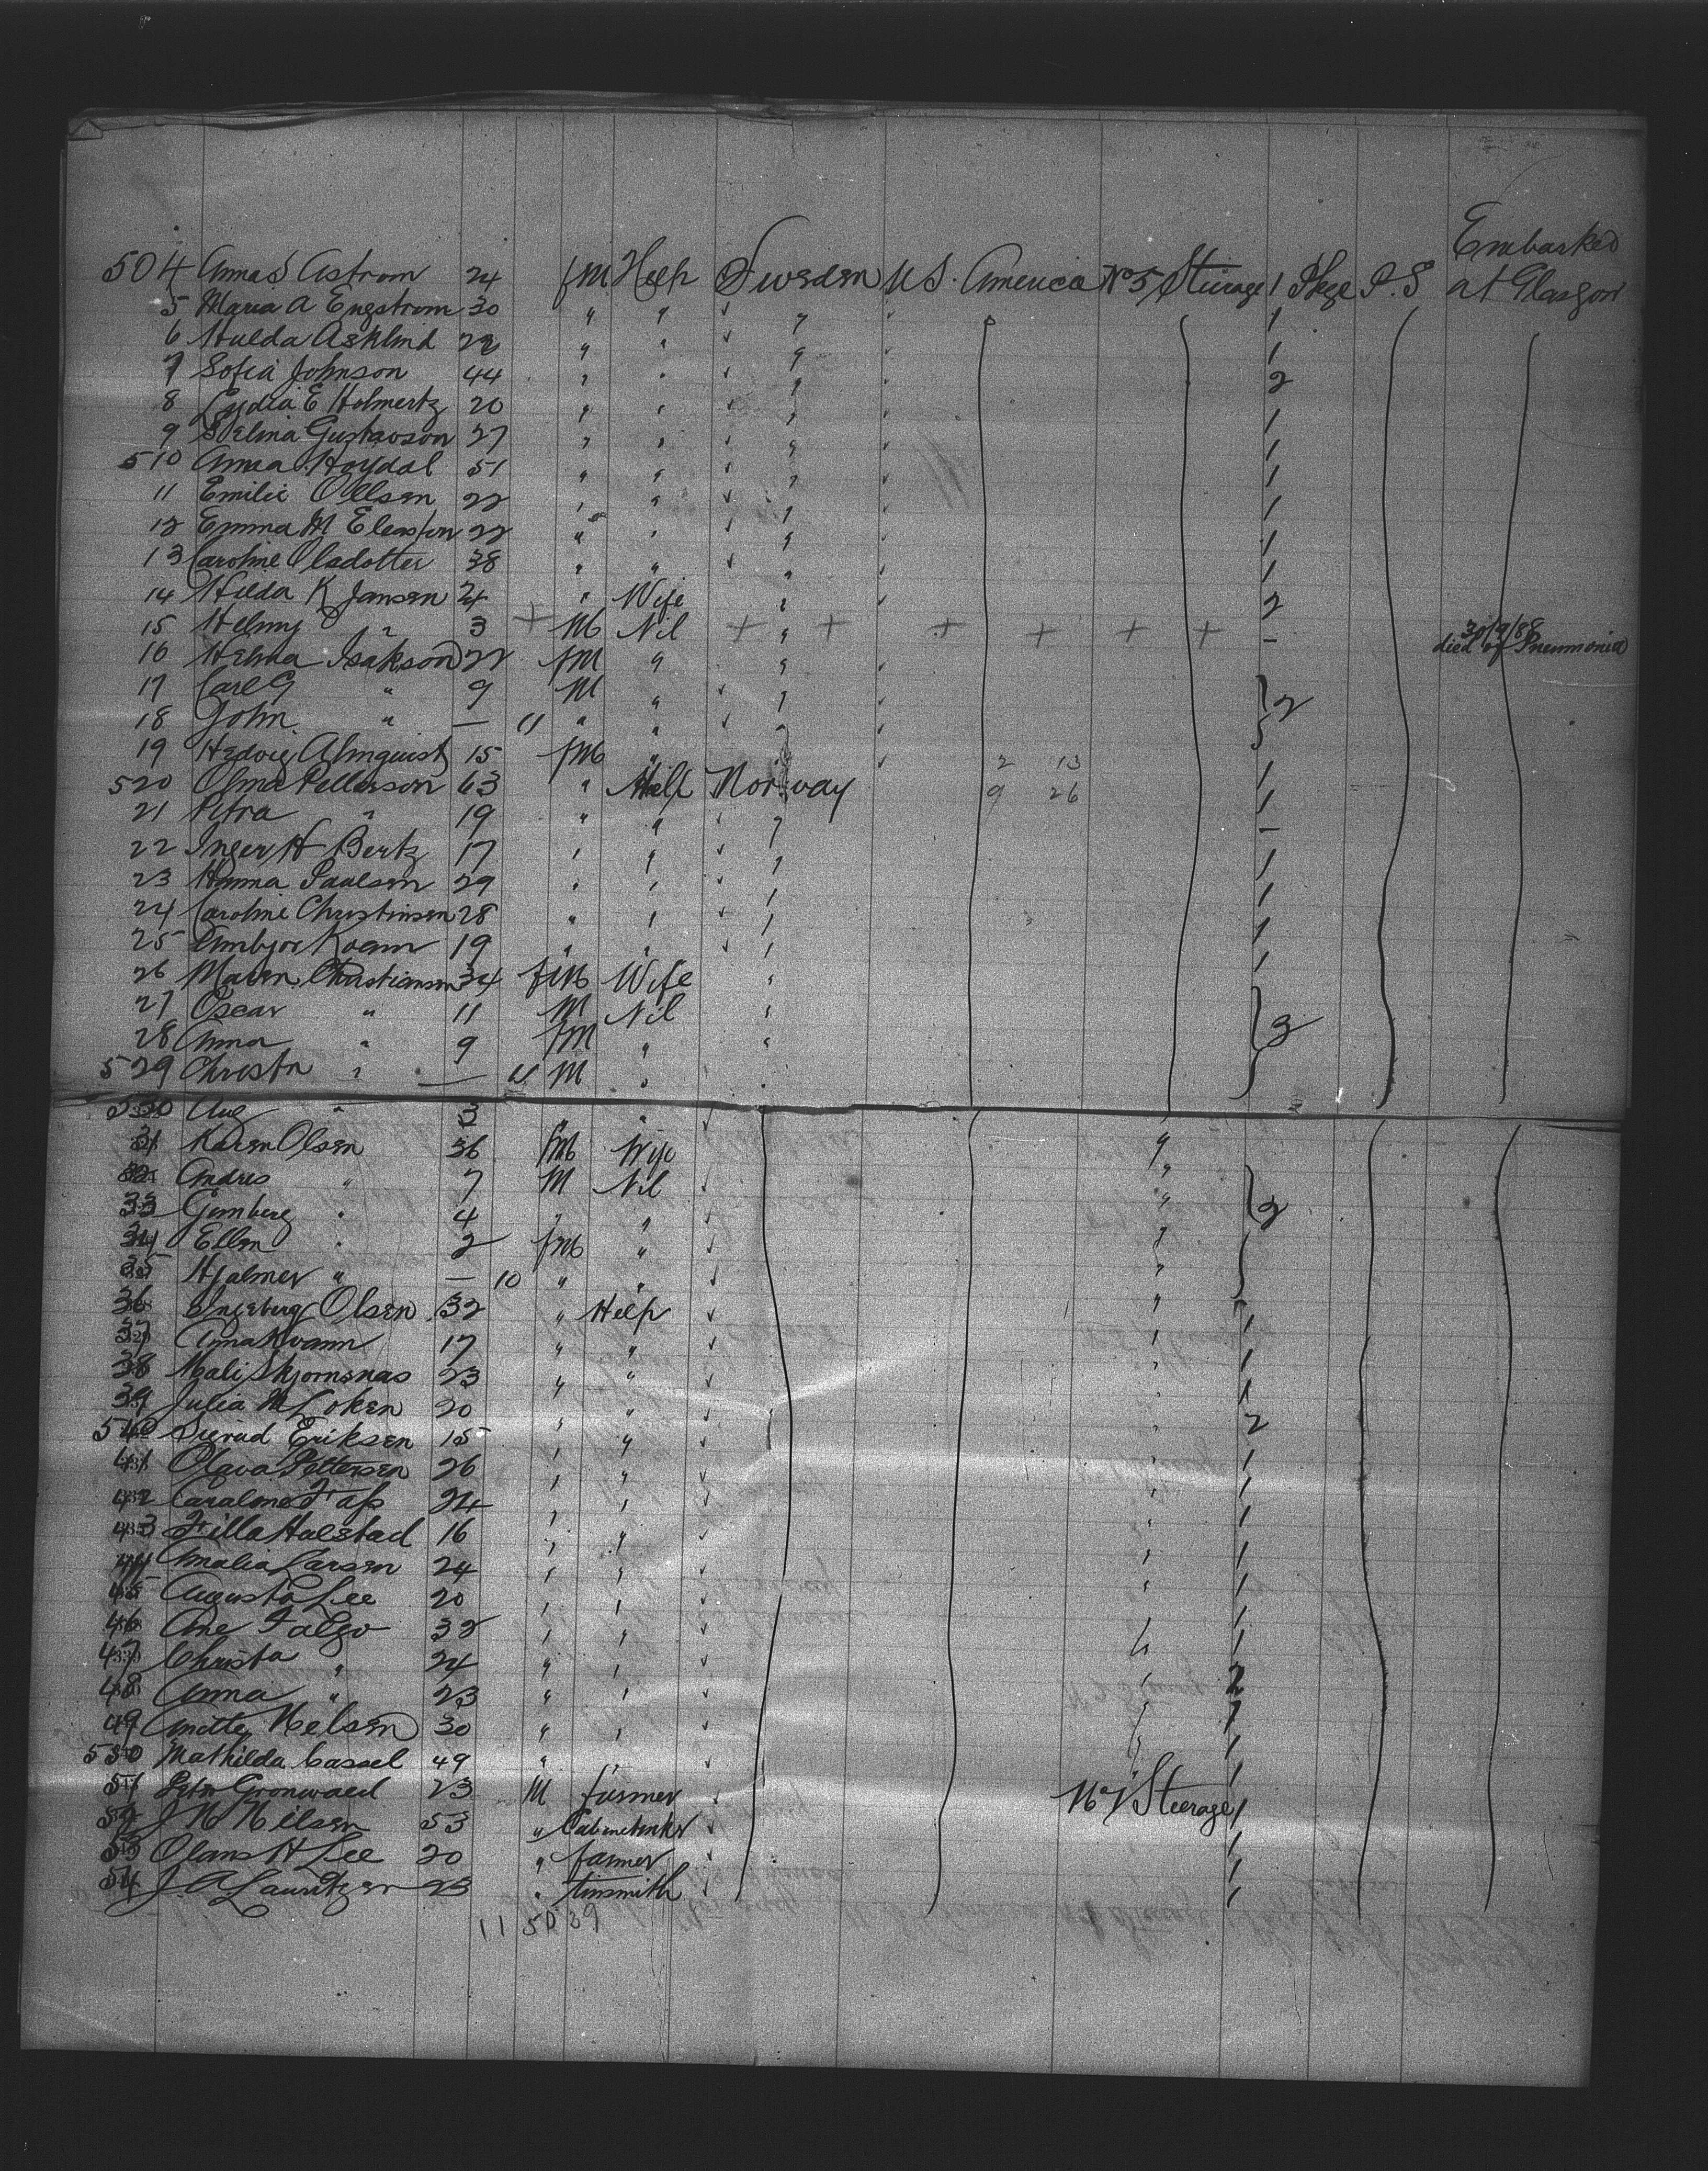 Embarked
504 Anna S Astrom 24 fM Help Sweden U.S. America No 5 Steerage 1 Pkge P.S at Glasgow
5 Maria A Engstrom 30 " " " " 1
6 Hulda Asklind 22 " " " 1
7 Sofia Johnson 44 " " " 2
8 Lydia E Holmertz 20 " " " 1
9 Selma Gustavson 27 " " " 1
510 Anna Hoydal 51 " " " 1
11 Emilie Ollsen 22 " " " 1
12 Emma M 22 " " " 1
13 Caroline Olsdotter 38 " " " 1
14 Hilda K Jansen 24 " Wife " 2
15 Helmy " 3 + M Nil + " + + + + + - 30/9/88
died of Pneumonia
16 Helma Isakson 22 fM " "
17 Carl G " 9 M " " 2
18 John " — 11 " " "
19 Hedvig Almquist 15 fM " " 2 13 1
520 Pettersson 63 " Help Norway 9 26 1
21 Petra " 19 " " " -
22 Inger H Bertz 17 " " " 1
23 Paulsen 29 " " " 1
24 Caroline Christinsen 28 " " " 1
25 19 " " " 1
26 Maren Christiansen 34 fM Wife "
27 Oscar " 11 M Nil " 3
28 Anna " 9 fM " "
529 Christn " — 11 M " "
530 Aug " 3 " "
31 Karen Olsen 36 fM Wife "
32 Andres " 7 M Nil " 3
33 " 4 " " "
34 Ellen " 2 fM " "
35 Hjalmer " — 10 " " "
36 Ingeberg Olsen 32 " Help " 1
37 Anna Kvamm 17 " " " 1
38 Mali Skjornsnas 23 " " " 1
39 Julia M Loken 20 " " " 2
540 Eriksen 15 " " " 1
41 Olava Pettersen 26 " " " 1
42 24 " " " 1
43 Halstad 16 " " " 1
44 Amalia Larsen 24 " " " 1
45 Augusta Lee 20 " " " 1
46 Ane 32 " " " 1
47 Christa " 24 " " " 2
48 Anna " 23 " " " 1
49 Anette Nelsen 30 " " " 1
550 Mathilda Cassel 49 " " " 1
51 Gronwald 23 M farmer No 1 Steerage 1
52 J N Nilsen 53 " 1
53 Olans H Lee 20 " farmer 1
54 J. A Lauritzen 23 " tinsmith 1
11 50 39